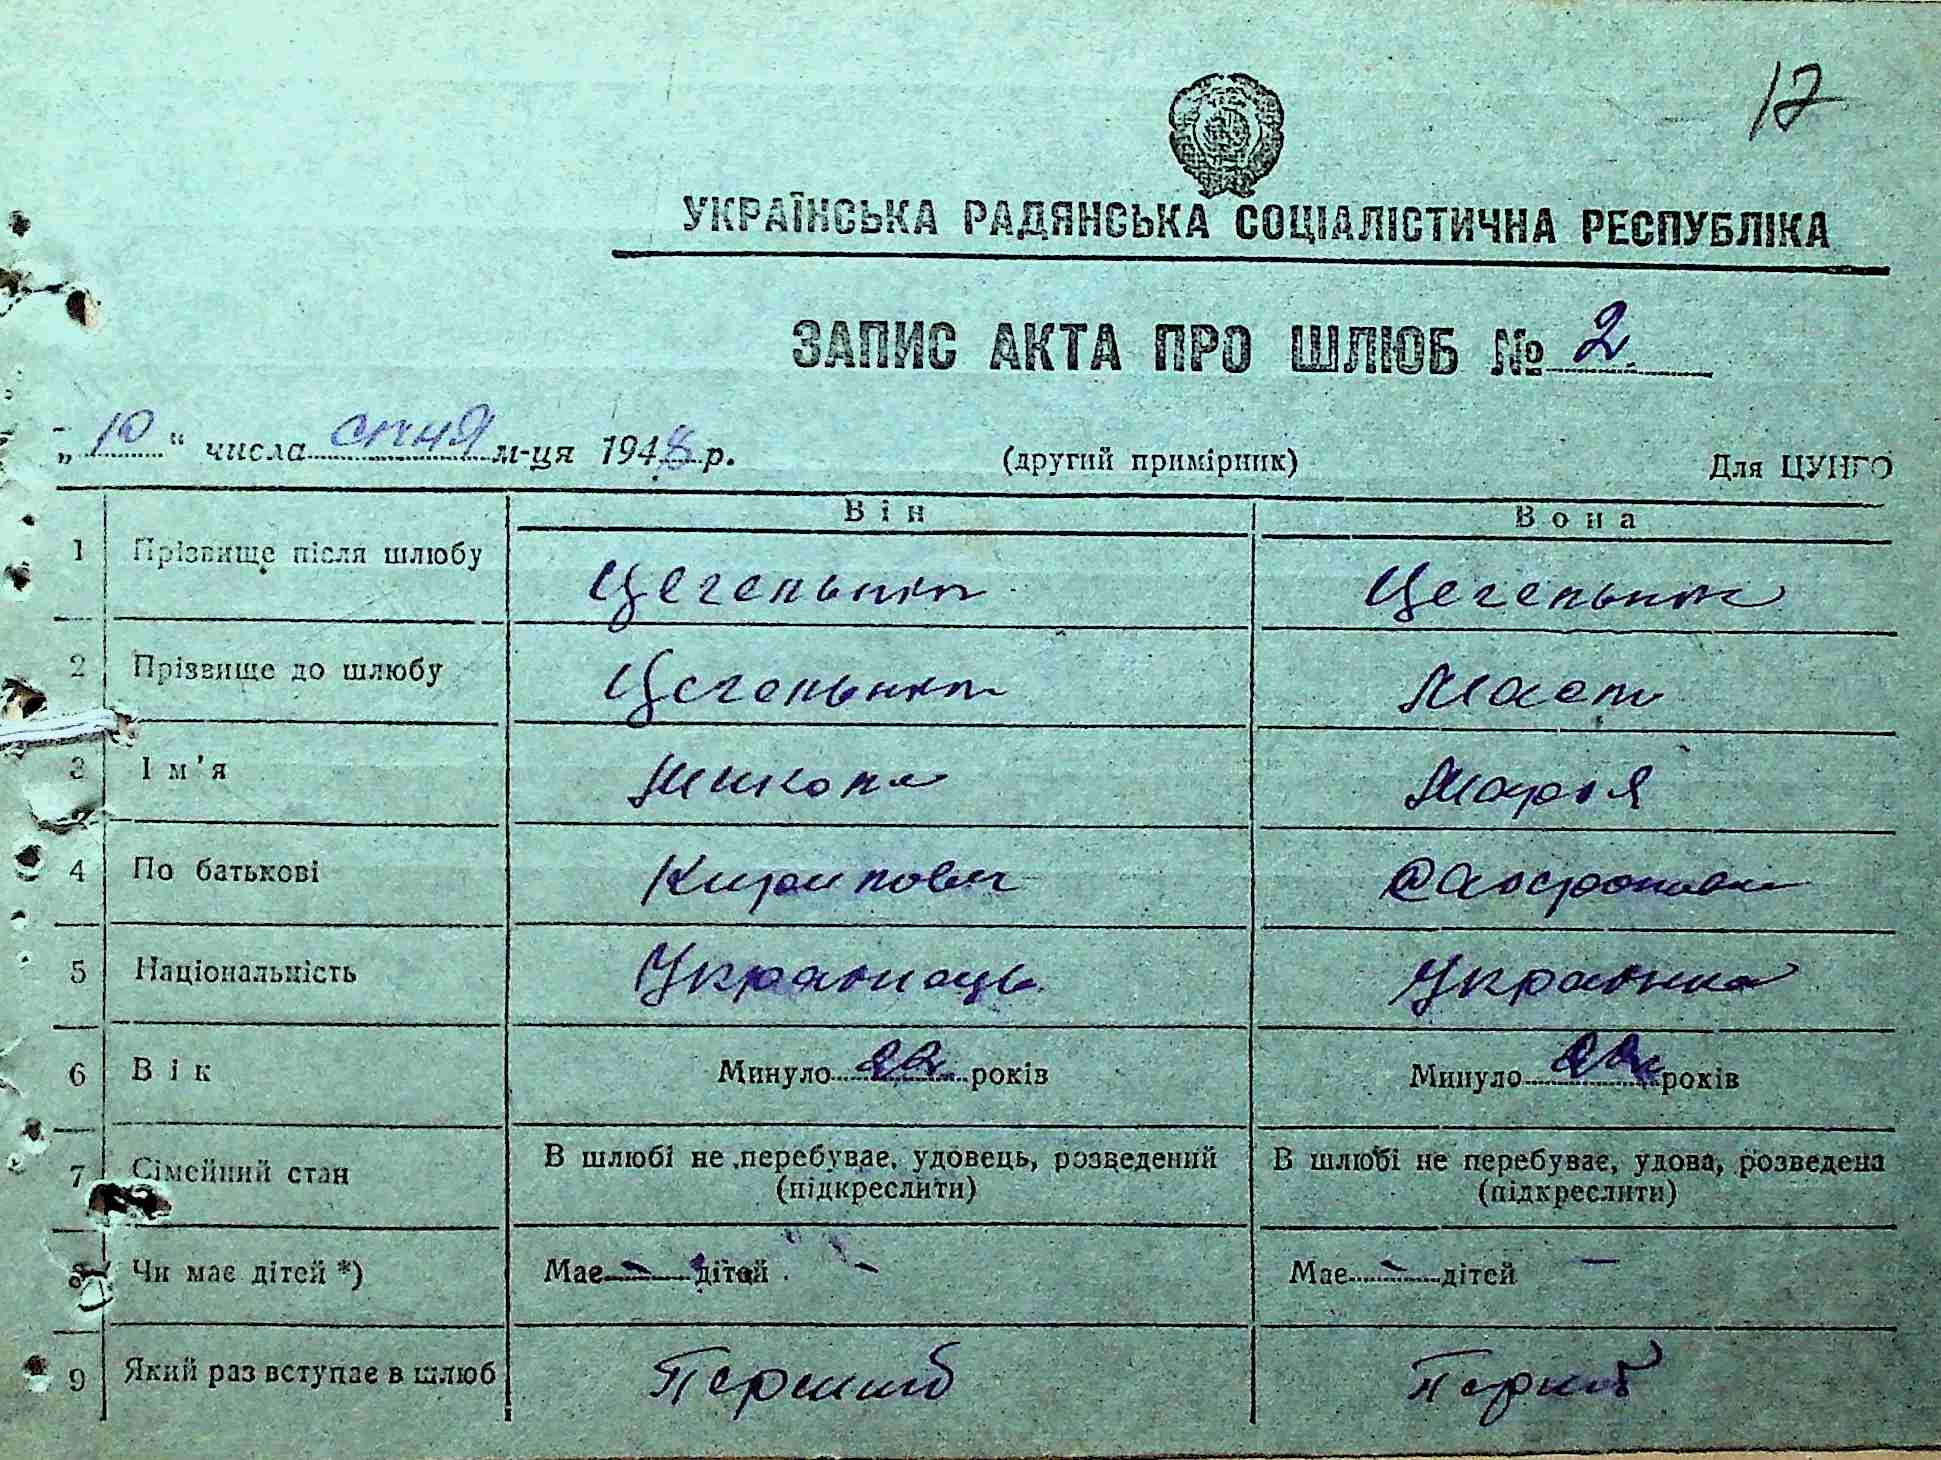 17
УКРАЇНСЬКА РАДЯНСЬКА СОЦІАЛІСТИЧНА РЕСПУБЛІКА
ЗАПИС АКТА ПРО ШЛЮБ № 2
„10“ числа січня м-ця 1948 р. (другий примірник) Для ЦУНГО
Він Вона
1 Прізвище після шлюбу Цегельник Цегельник
2 Прізвище до шлюбу Цегельник
3 Ім'я Микола Марія
4 По батькові Кирилович
5 Національність Українець Українка
6 Вік Минуло 22 років Минуло 22 років
7 Сімейний стан В шлюбі не перебуває, удовець, розведений В шлюбі не перебуває, удова, розведена
(підкреслити) (підкреслити)
8 Чи має дітей *) Має - дітей - Має - дітей -
9 Який раз вступає в шлюб Перший Перший